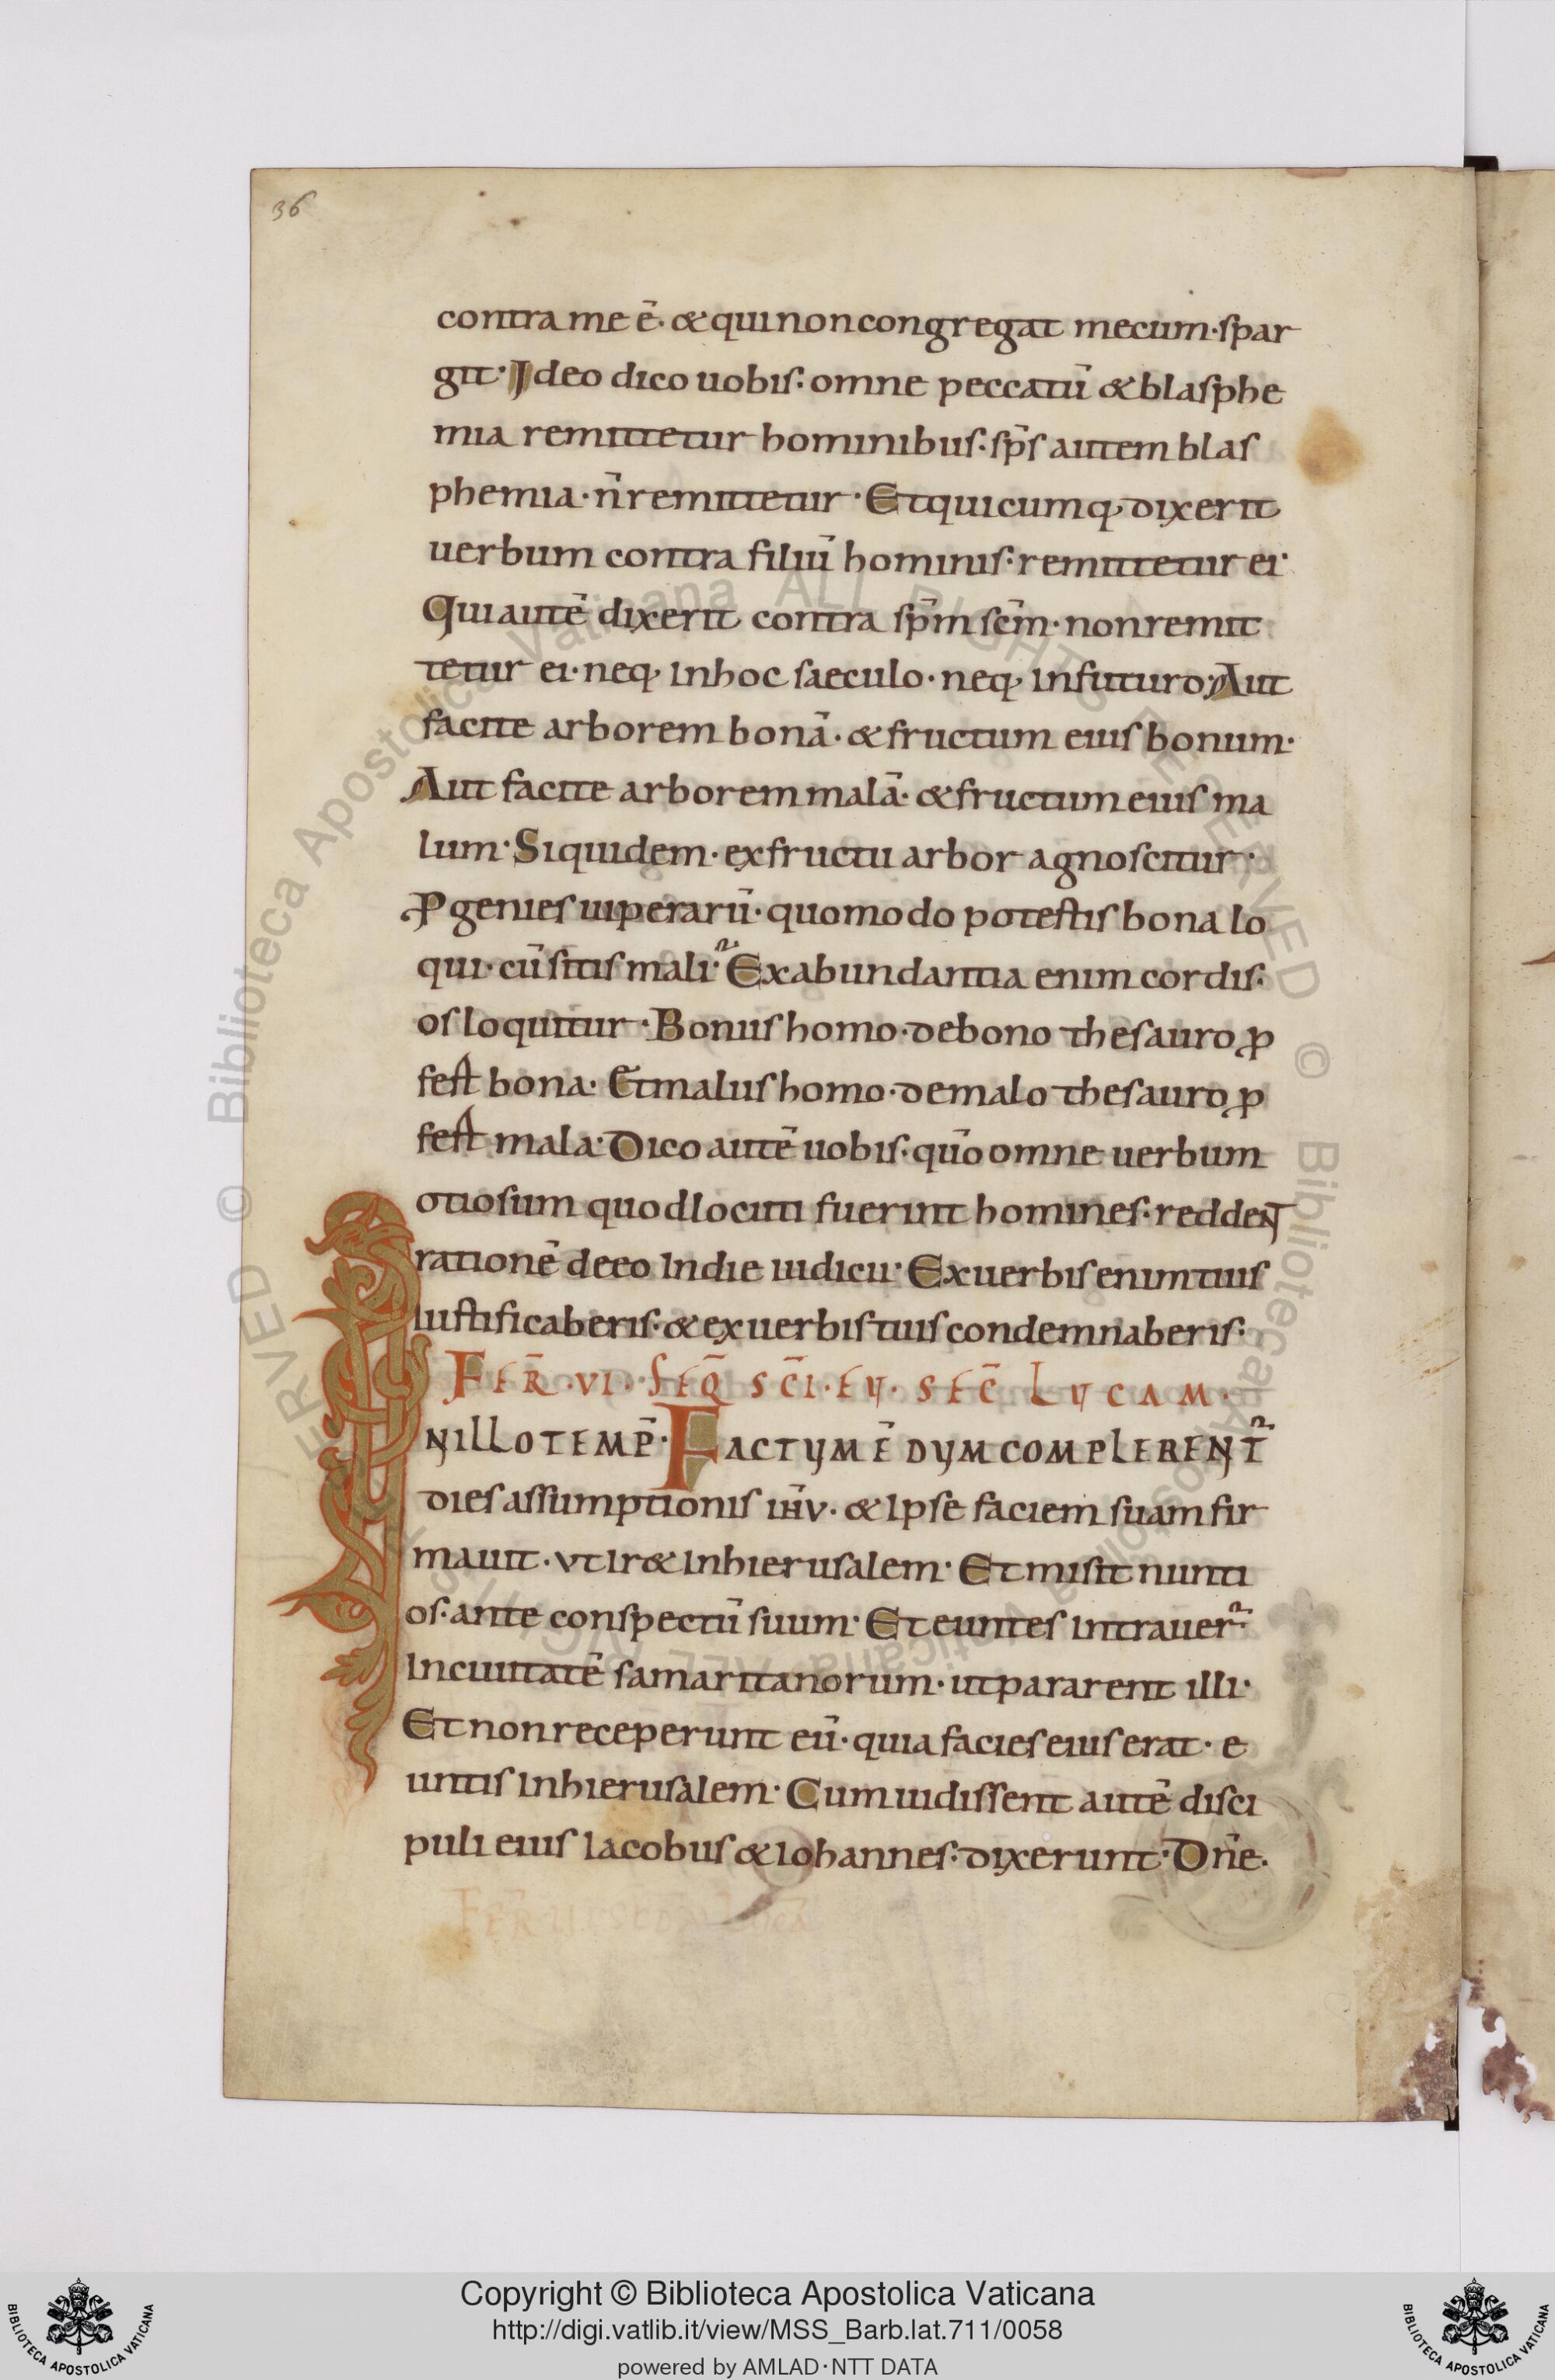 36
contra me ē· & qui non congregat mecum· spar
git· Ideo dico uobis· omne peccatū & blasphe
mia remittetur hominibus· sp̄s autem blas
phemia· n̄ remittetur· Et quicumq· dixerit
uerbum contra filiū hominis· remittetur ei·
Qui autē dixerit contra sp̄m sc̄m· non remit
tetur ei· neq· in hoc saeculo· neq· in futuro· Aut
facite arborem bonā· & fructum eius bonum·
Aut facite arborem malā· & fructum eius ma
lum· Siquidem· ex fructu arbor agnoscitur·
Ꝓgenies uiperarū· quomodo potestis bona lo
qui· cū sitis mali· Ex abundantia enim cordis·
os loquitur· Bonus homo· de bono thesauro ꝓ
fest bona· Et malus homo· de malo thesauro ꝓ
fest mala· Dico autē uobis· qūo omne uerbum
otiosum quod locuti fuerint homines· reddent
rationē de eo in die iudicii· Ex uerbis enim tuis
iustificaberis· & ex uerbis tuis condemnaberis·
FER̄· VI· SEQ̄ SC̄I· EU· SEC̄ LUCAM·
IN ILLO TEMP̄· FACTUM Ē DUM COMPLERENT᷑
dies assumptionis ιh̄v· & ipse faciem suam fir
mauit· vt ir& in hierusalem· Et misit nunti
os· ante conspectū suum· Et euntes intrauer᷑·
in ciuitatē samaritanorum· ut pararent illi·
Et non receperunt eū· quia facies eius erat· e
untis in hierusalem· Cum uidissent autē disci
puli eius iacobus & iohannes· dixerunt· Dn̄e·
© Biblioteca Apostolica Vaticana ALL RIGHTS RESERVED
Copyright © Biblioteca Apostolica Vaticana
http://digi.vatlib.it/view/MSS_Barb.lat.711/0058
powered by AMLAD·NTT DATA
BIBLIOTECA APOSTOLICA VATICANA
BIBLIOTECA APOSTOLICA VATICANA